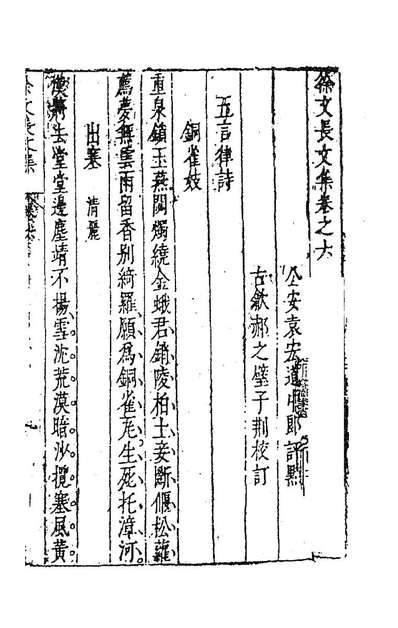 徐文長文集卷之六
公安袁宏道中郎評點
古歙郝之璧子荆校訂
五言律詩
銅雀妓
重泉鎮玉燕閟燭繞金蛾君銷陵柏土妾斷偃松蘿
薦夢無雲雨留香别綺羅願爲銅雀瓦生死托漳河
出塞 清麗
漢將去堂堂邊塵靖不揚雪沈荒漠暗沙攪塞風黄
徐文長文集